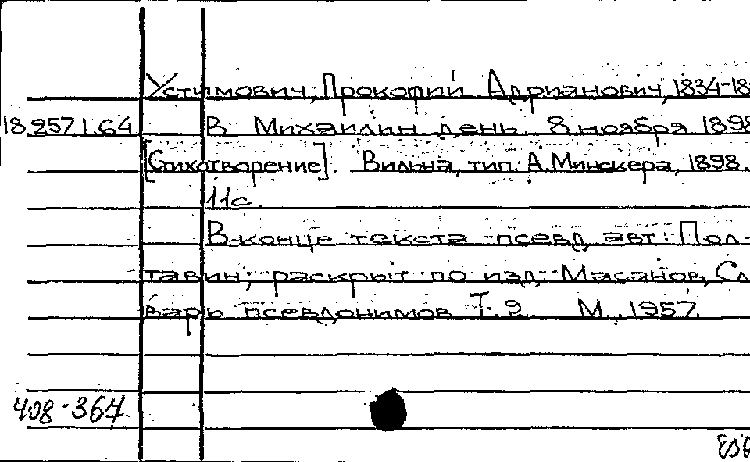 Устимович, Прокофий Адрианович, 1834-18
18.257.1.64 В Михайлин день 8 ноября 1898
[Стихотворение]. Вильна, тип. А. Минскера, 1898.
11с.
В конце текста псевд. авт.: Пол-
тавин; раскрыт по изд.: Масанов, Сл
варь псевдонимов Т. 2 М., 1957.
408-364